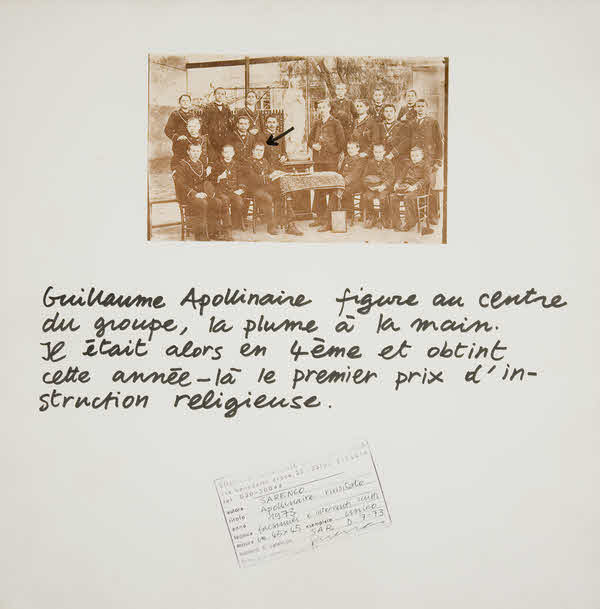 Guillaume Apollinaire figure au centre
du groupe, la plume à la main.
Il était alors en 4ème et obtint
cette année-là le premier prix d'in-
struction religieuse.
autore SARENCO
titolo Apollinaire
anno 1973
tecnica e interventi
misure ca. 65x45 esemplare unico
SAR. D. 7-73